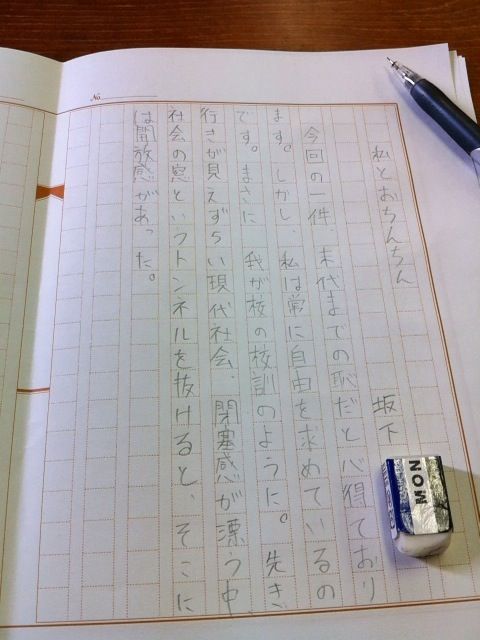 No.
私とおちんちん
坂下
今回の一件、末代までの恥だと心得ており
ます。しかし、私は常に自由を求めているの
です。まさに我が校の校訓のように。先き
行きが見えずらい現代社会、閉塞感が漂う中
社会の窓というトンネルを抜けると、そこに
は開放感があった。
MON